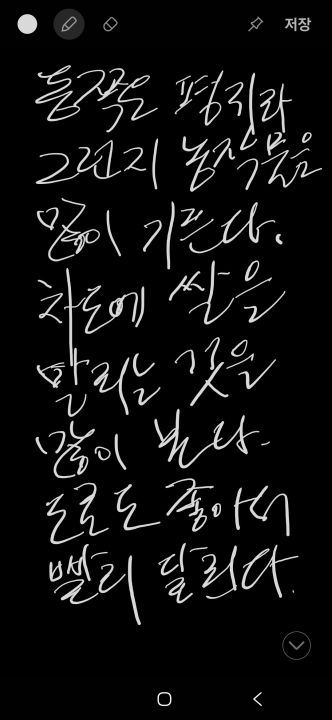 저장
동쪽은 평지라
그런지 농작물을
많이 기른다.
차도에 쌀을
말리는 것을
많이 본다.
도로도 좋아서
빨리 달린다.